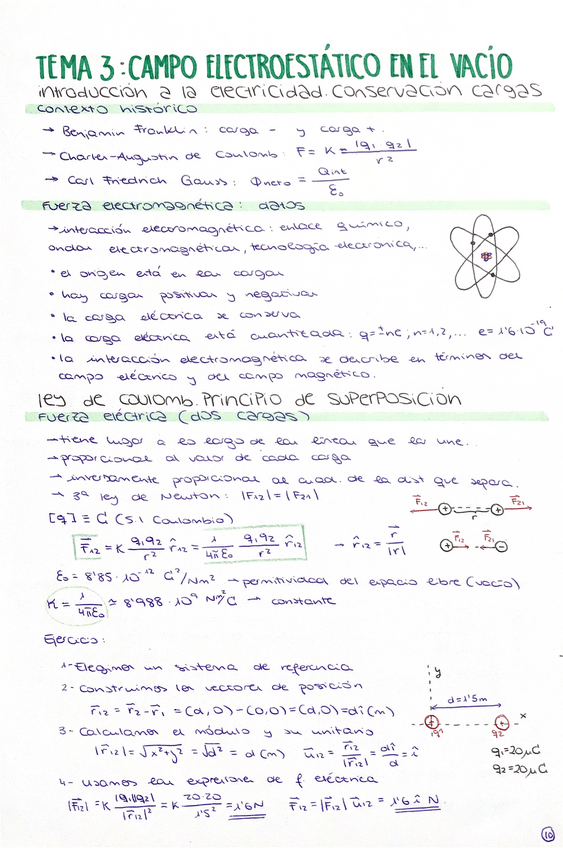 TEMA 3: CAMPO ELECTROESTÁTICO EN EL VACÍO
introducción a la electricidad. Conservación cargas
contexto histórico
→ Benjamin Franklin: carga - y carga +.
→ Charles-Augustin de Coulomb: F = K |q1 q2| / r²
→ Carl Friedrich Gauss: Φneto = Qint / ε₀
Fuerza electromagnética: datos
→ interacción electromagnética: enlace químico,
ondas electromagnéticas, tecnología electrónica,...
• el origen está en las cargas
• hay cargas positivas y negativas
• la carga eléctrica se conserva
• la carga eléctrica está cuantizada: q=±ne; n=1,2,... e=1'6·10⁻¹⁹ C
• la interacción electromagnética se describe en términos del
campo eléctrico y del campo magnético.
ley de coulomb. Principio de superposición
Fuerza eléctrica (dos cargas)
→ tiene lugar a lo largo de las líneas que las une..
→ proporcional al valor de cada carga
→ inversamente proporcional al cuad. de la dist que separa.
→ 3ª ley de Newton: |F12| = |F21|
F12 + r + F21
[q] ≡ C (S.I Coulombio)
F12 = K q1q2 / r² r̂12 = 1 / 4πε₀ q1q2 / r² r̂12 → r̂12 = r / |r|
+ F12 F21 -
ε₀ = 8'85·10⁻¹² C²/Nm² → permitividad del espacio libre (vacío)
K = 1 / 4πε₀ ≃ 8'988·10⁹ Nm²/C → constante
Ejercicio:
1- Elegimos un sistema de referencia
2- Construimos los vectores de posición
r12 = r2 - r1 = (d,0)-(0,0) = (d,0) = dî (m)
y
d=1'5m
x
q1 q2
3- Calculamos el módulo y su unitario
|r12| = √x²+y² = √d² = d (m) u12 = r12 / |r12| = dî / d = î
q1=20μC
q2=20μC
4- usamos las expresiones de f eléctrica
|F12| = K |q1||q2| / |r12|² = K 20·20 / 1'5² = 1'6N F12 = |F12| u12 = 1'6 î N.
10